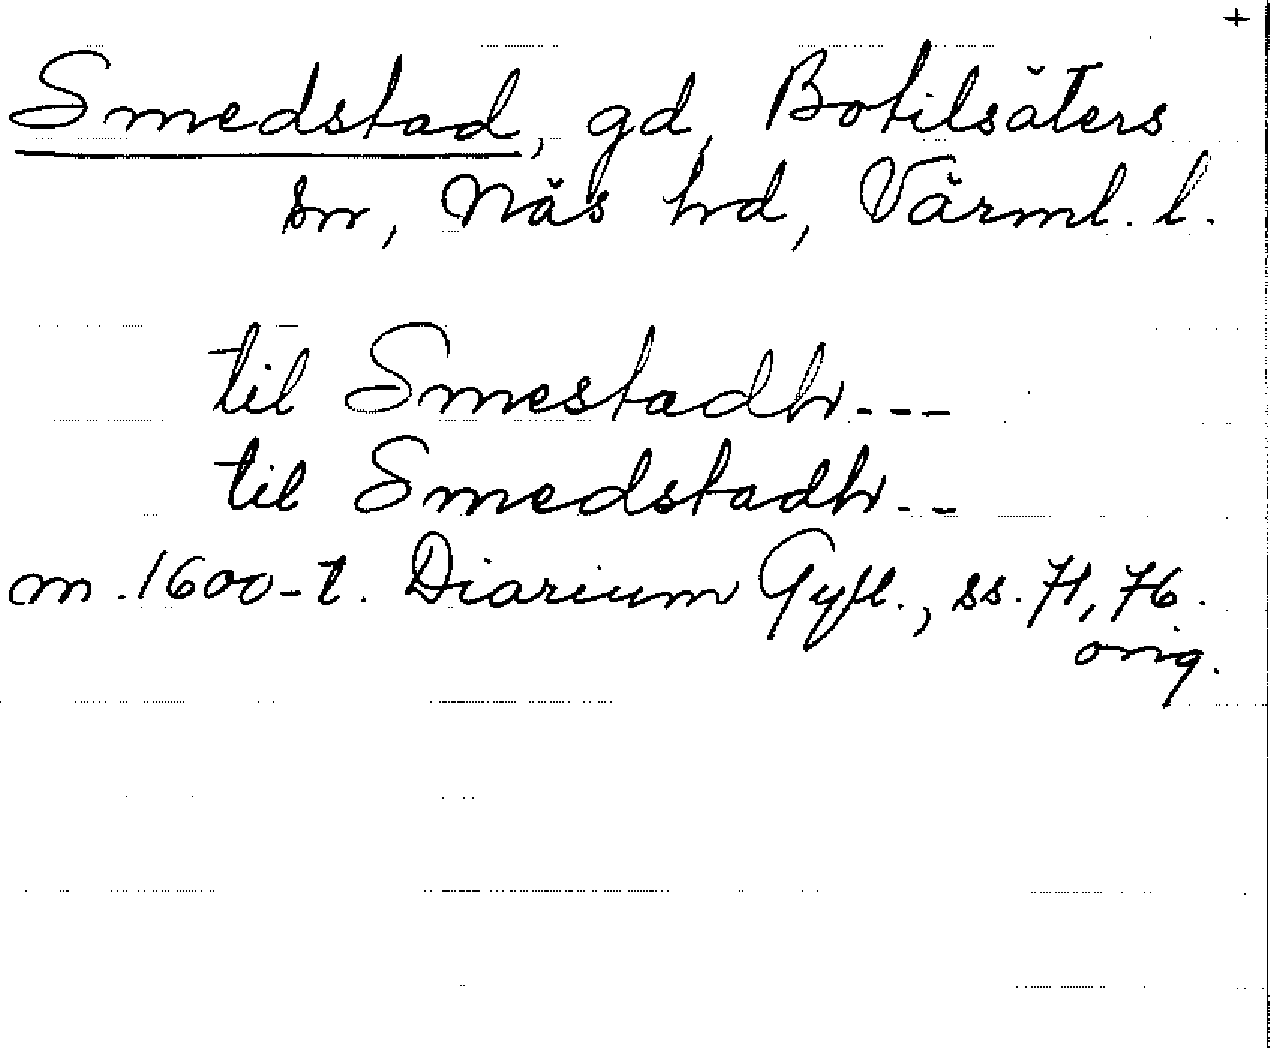 +
Smedstad, gd, Botilsäters
sn, Näs hd, Värml. l.
til Smestadh---
til Smedstadh--
m. 1600-t. Diarium Gyll., ss. 71, 76.
orig.